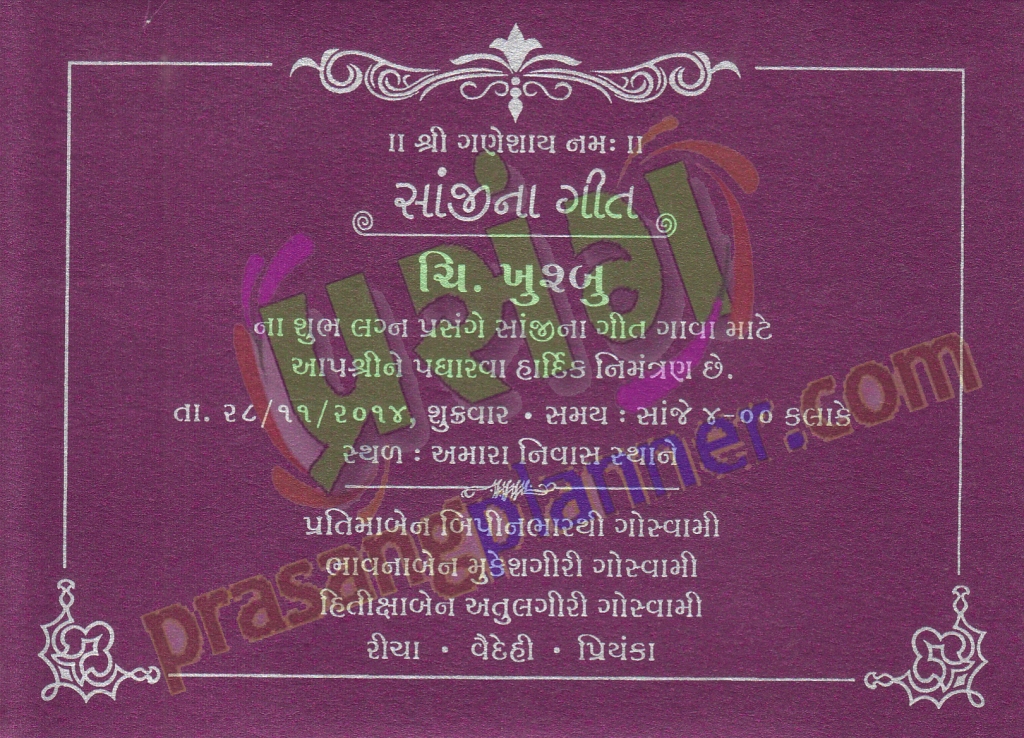 ॥ શ્રી ગણેશાય નમઃ ॥
સાંજીના ગીત
ચિ. ખુશ્બુ
ના શુભ લગ્ન પ્રસંગે સાંજીના ગીત ગાવા માટે
આપશ્રીને પધારવા હાર્દિક નિમંત્રણ છે.
તા. ૨૮/૧૧/૨૦૧૪, શુક્રવાર • સમય : સાંજે ૪-૦૦ કલાકે
સ્થળ : અમારા નિવાસ સ્થાને
પ્રતિમાબેન બિપીનભારથી ગોસ્વામી
ભાવનાબેન મુકેશગીરી ગોસ્વામી
હિતીક્ષાબેન અતુલગીરી ગોસ્વામી
રીચા • વૈદેહી • પ્રિયંકા
પ્રસંગ
prasangplanner.com